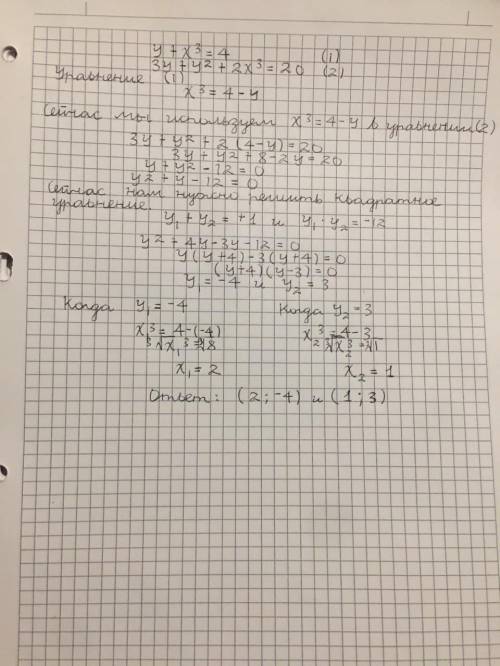 y + x³ = 4 (1)
3y + y² + 2x³ = 20 (2)
Уравнение (1)
x³ = 4 - y
Сейчас мы используем x³ = 4 - y в уравнении (2)
3y + y² + 2 (4 - y) = 20
3y + y² + 8 - 2y = 20
y + y² - 12 = 0
y² + y - 12 = 0
Сейчас нам нужно решить квадратное
уравнение.
y₁ + y₂ = +1 и y₁ · y₂ = -12
y² + 4y - 3y - 12 = 0
y (y + 4) - 3 (y + 4) = 0
(y + 4) (y - 3) = 0
y₁ = -4 и y₂ = 3
Когда y₁ = -4 Когда y₂ = 3
x₁³ = 4 - (-4) x₂³ = 4 - 3
³√x₁³ = ³√8 ³√x₂³ = ³√1
x₁ = 2 x₂ = 1
Ответ: (2 ; -4) и (1 ; 3)